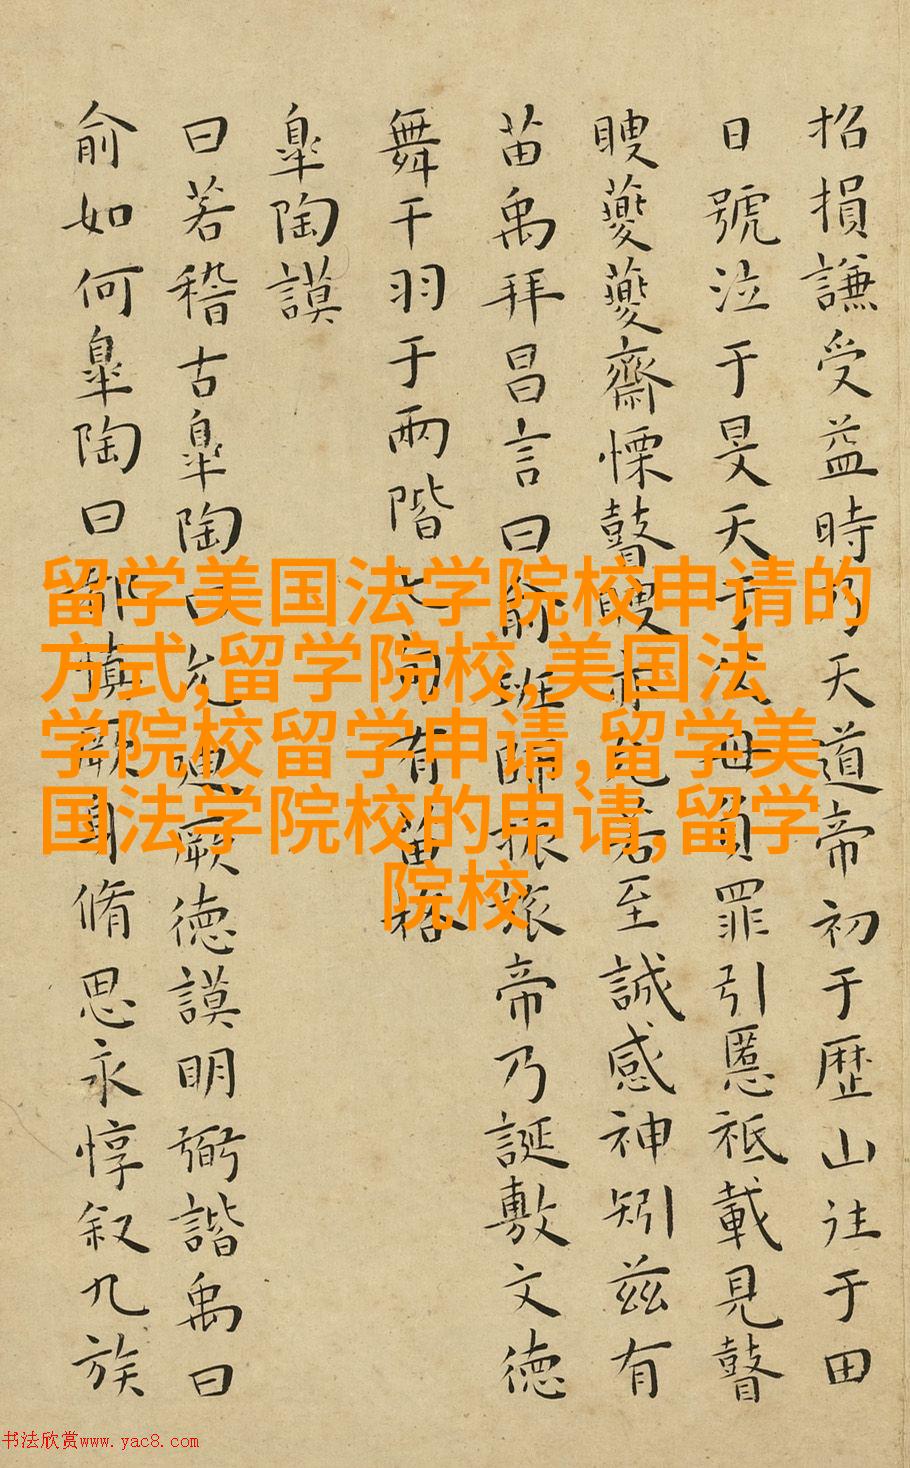 招損謙受益時乃天道帝初于歴山往于田
日號泣于旻天于父母負罪引慝祗載見瞽
瞍夔夔齋慄瞽瞍亦允若至諴感神矧茲有
苗禹拜昌言曰俞班師振旅帝乃誕敷文徳
舞干羽于兩階七旬有苗格
皐陶謨
曰若稽古皐陶曰允迪厥徳謨明弼諧禹曰
俞如何皐陶曰都慎厥身脩思永惇叙九族
留学美国法学院校申请的
方式,留学院校,美国法
学院校留学申请,留学美
国法学院校的申请,留学
院校
书法欣赏www.yac8.com